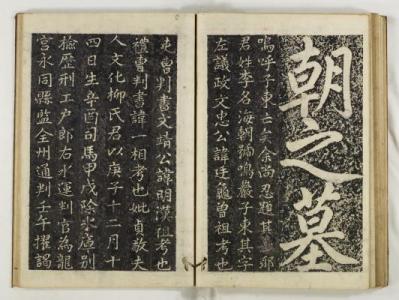 朝之墓
嗚呼子東亡矣余尚忍題其墓耶
君姓李名海朝號鳴巖子東其字
左議政文忠公諱廷龜曾祖考也
吏曹判書文靖公諱明漢祖考也
禮曹判書諱一相考也妣貞敬夫
人文化柳氏君以庚子十二月十
四日生辛酉司馬甲戌除氷庫別
檢歷刑工戶郎右水運判官為龍
宮永同縣監全州通判壬午擢謁